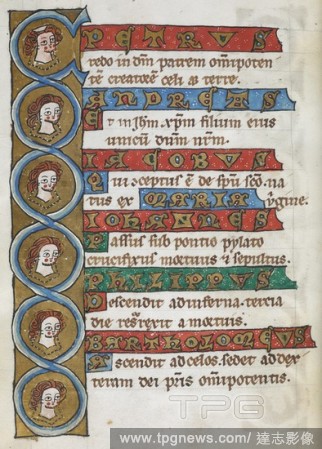 PETRUS
Credo in dm patrem omipoten
tē creatorē celi ac terre.
ANDREAS
Et in ihm. xpm filium eius
unicū dnm nrm.
IACOBUS
Qui cceptus ē de spu sco. na
tus ex MARIA ygine.
IOHANNES
Passus sub pontio pylato
crucifixus mortuus ⁊ sepultus.
PHILIPPUS
Descendit ad inferna. tercia
die resrexit a mortuis.
BARTHOLOMEUS
Ascendit ad celos. sedet ad dex
teram dei pris omipotentis.
TPG
www.tpgnews.com / 達志影像